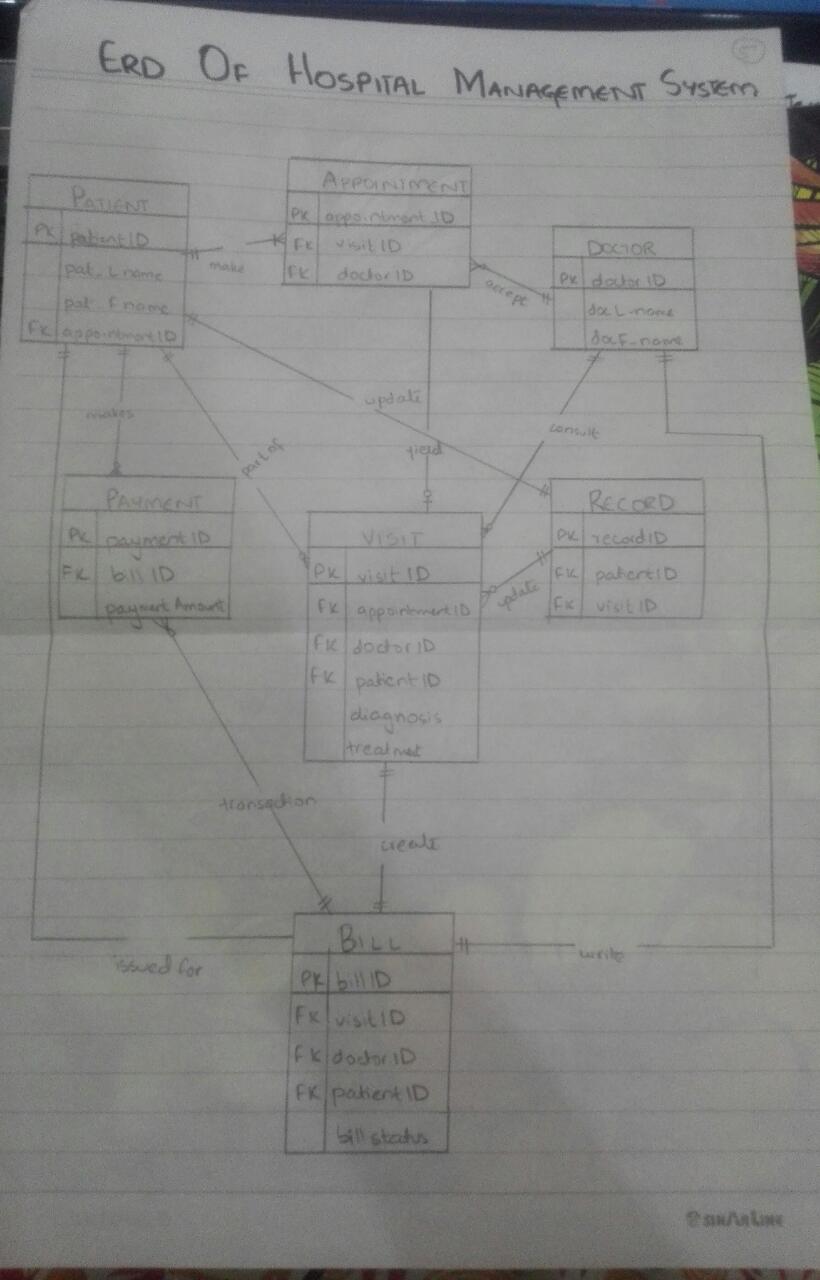 ERD OF HOSPITAL MANAGEMENT SYSTEM
PATIENT
PK patientID
pat_Lname
pat_Fname
FK appointmentID
APPOINTMENT
PK appointment ID
FK visit ID
FK doctor ID
DOCTOR
PK doctor ID
doc L_name
doc F_name
make
accept
update
yield
consult
makes
part of
PAYMENT
PK payment ID
FK bill ID
payment Amount
VISIT
PK visit ID
FK appointment ID
FK doctor ID
FK patient ID
diagnosis
treatmet
RECORD
PK record ID
FK patient ID
FK visit ID
update
transaction
create
issued for
write
BILL
PK bill ID
FK visit ID
FK doctor ID
FK patient ID
bill status